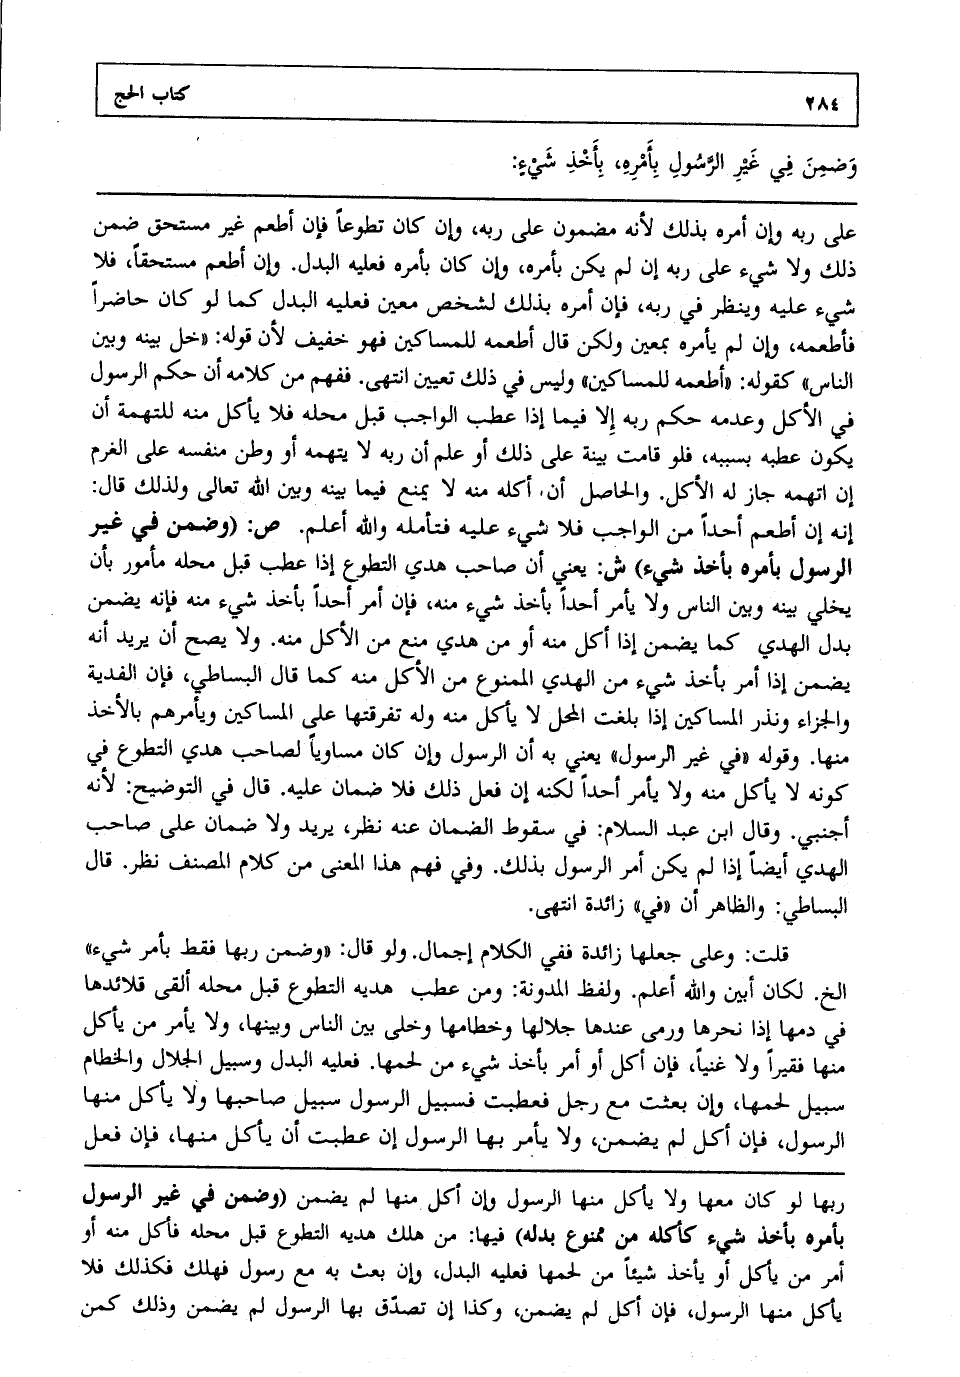 ٢٨٤
كتاب الحج
وَضمِنَ فِي غَيْرِ الرَّسُولِ بِأَمْرِهِ، بِأَخْذِ شَيْءٍ:
على ربه وإن أمره بذلك لأنه مضمون على ربه، وإن كان تطوعاً فإن أطعم غير مستحق ضمن
ذلك ولا شيء على ربه إن لم يكن بأمره، وإن كان بأمره فعليه البدل. وإن أطعم مستحقاً، فلا
شيء عليه وينظر في ربه، فإن أمره بذلك لشخص معين فعليه البدل كما لو كان حاضراً
فأطعمه، وإن لم يأمره بمعين ولكن قال أطعمه للمساكين فهو خفيف لأن قوله: «خل بينه وبين
الناس» كقوله: «أطعمه للمساكين» وليس في ذلك تعيين انتهى. ففهم من كلامه أن حكم الرسول
في الأكل وعدمه حكم ربه إلا فيما إذا عطب الواجب قبل محله فلا يأكل منه للتهمة أن
يكون عطبه بسببه، فلو قامت بينة على ذلك أو علم أن ربه لا يتهمه أو وطن منفسه على الغرم
إن اتهمه جاز له الأكل. والحاصل أن، أكله منه لا يمنع فيما بينه وبين الله تعالى ولذلك قال:
إنه إن أطعم أحداً من الواجب فلا شيء عليه فتأمله والله أعلم. ص: (وضمن في غير
الرسول بأمره بأخذ شيء) ش: يعني أن صاحب هدي التطوع إذا عطب قبل محله مأمور بأن
يخلي بينه وبين الناس ولا يأمر أحداً بأخذ شيء منه، فإن أمر أحداً بأخذ شيء منه فإنه يضمن
بدل الهدي كما يضمن إذا أكل منه أو من هدي منع من الأكل منه. ولا يصح أن يريد أنه
يضمن إذا أمر بأخذ شيء من الهدي الممنوع من الأكل منه كما قال البساطي، فإن الفدية
والجزاء ونذر المساكين إذا بلغت المحل لا يأكل منه وله تفرقتها على المساكين ويأمرهم بالأخذ
منها. وقوله «في غير الرسول» يعني به أن الرسول وإن كان مساوياً لصاحب هدي التطوع في
كونه لا يأكل منه ولا يأمر أحداً لكنه إن فعل ذلك فلا ضمان عليه. قال في التوضيح: لأنه
أجنبي. وقال ابن عبد السلام: في سقوط الضمان عنه نظر، يريد ولا ضمان على صاحب
الهدي أيضاً إذا لم يكن أمر الرسول بذلك. وفي فهم هذا المعنى من كلام المصنف نظر. قال
البساطي: والظاهر أن «في» زائدة انتهى.
قلت: وعلى جعلها زائدة ففي الكلام إجمال. ولو قال: «وضمن ربها فقط بأمر شيء»
الخ. لكان أبين والله أعلم. ولفظ المدونة: ومن عطب هديه التطوع قبل محله ألقى قلائدها
في دمها إذا نحرها ورمى عندها جلالها وخطامها وخلى بين الناس وبينها، ولا يأمر من يأكل
منها فقيراً ولا غنياً، فإن أكل أو أمر بأخذ شيء من لحمها. فعليه البدل وسبيل الجلال والخطام
سبيل لحمها، وإن بعثت مع رجل فعطبت فسبيل الرسول سبيل صاحبها ولا يأكل منها
الرسول، فإن أكل لم يضمن، ولا يأمر بها الرسول إن عطبت أن يأكل منها، فإن فعل
ربها لو كان معها ولا يأكل منها الرسول وإن أكل منها لم يضمن (وضمن في غير الرسول
بأمره بأخذ شيء كأكله من ممنوع بدله) فيها: من هلك هديه التطوع قبل محله فأكل منه أو
أمر من يأكل أو يأخذ شيئاً من لحمها فعليه البدل، وإن بعث به مع رسول فهلك فكذلك فلا
يأكل منها الرسول، فإن أكل لم يضمن، وكذا إن تصدّق بها الرسول لم يضمن وذلك كمن